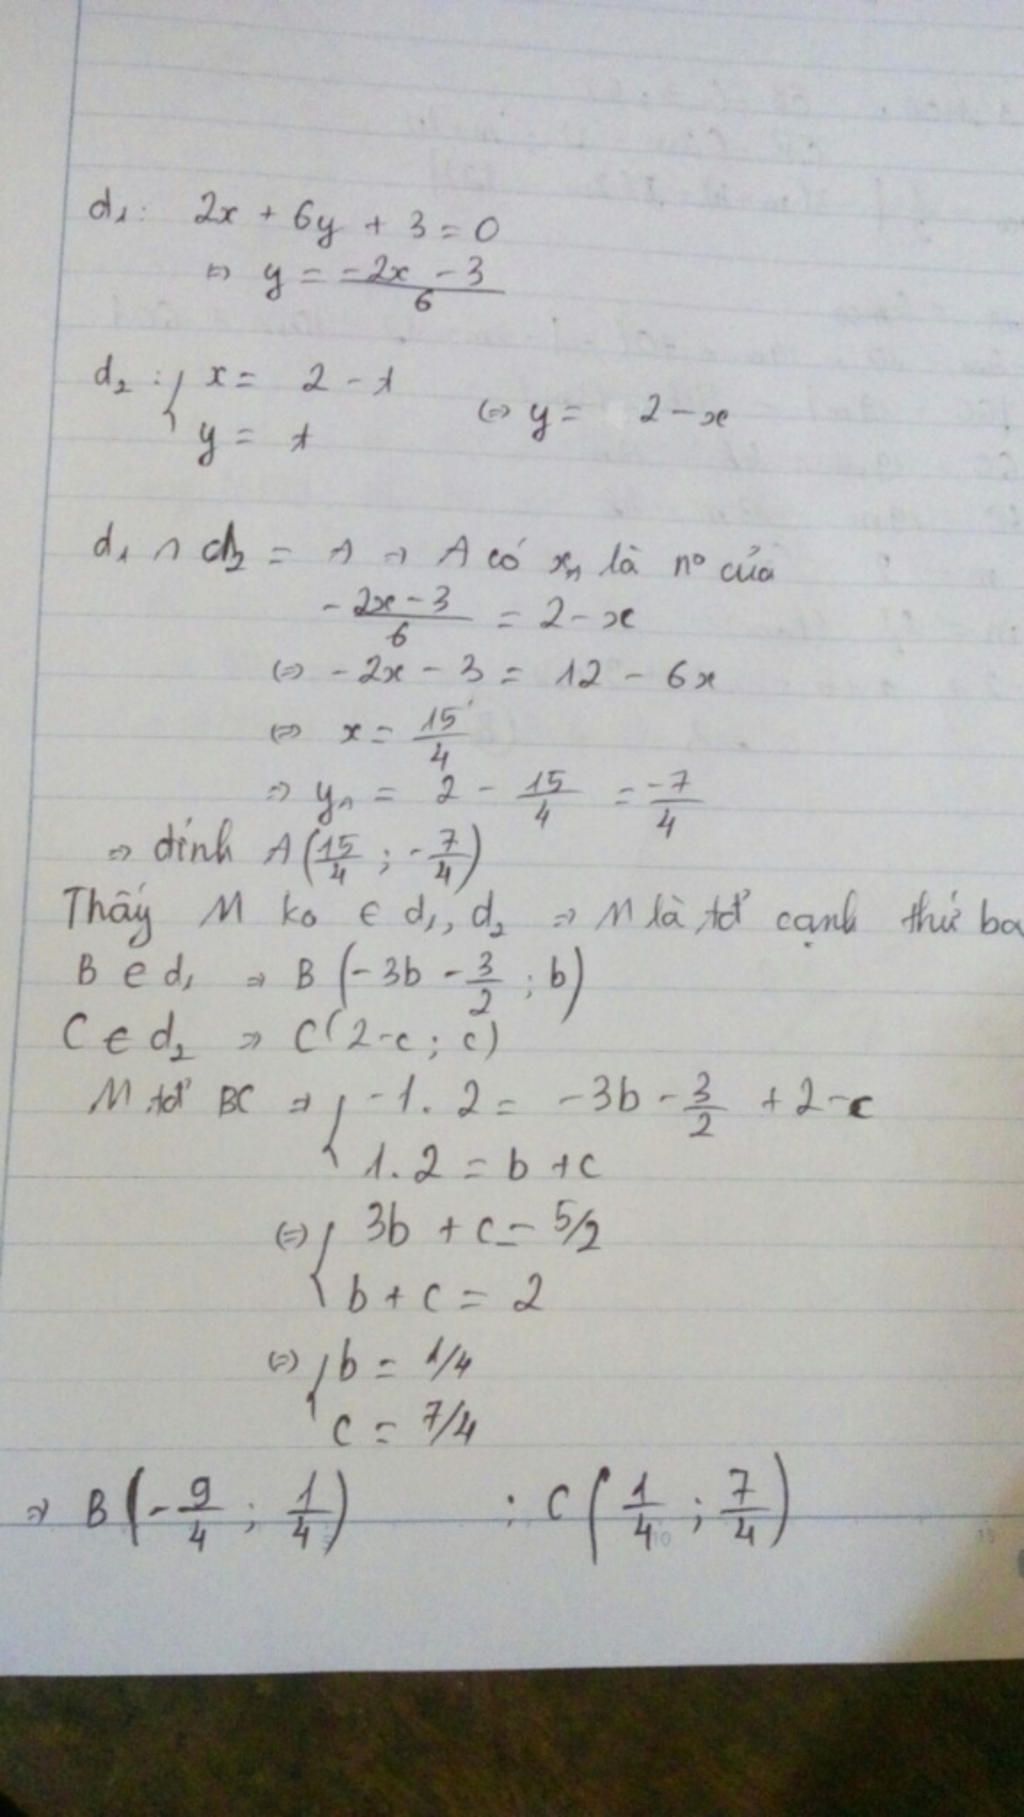 d₁: 2x + 6y + 3 = 0
⇔ y = (-2x - 3)/6
d₂: { x = 2 - t
y = t ⇔ y = 2 - x
d₁ ∩ d₂ = A ⇒ A có x_A là n° của
(-2x - 3)/6 = 2 - x
⇔ -2x - 3 = 12 - 6x
⇔ x = 15/4
⇒ y_A = 2 - 15/4 = -7/4
⇒ đỉnh A(15/4 ; -7/4)
Thấy M ko ∈ d₁, d₂ ⇒ M là tđ cạnh thứ ba
B ∈ d₁ ⇒ B (-3b - 3/2 ; b)
C ∈ d₂ ⇒ C (2-c ; c)
M tđ BC ⇒ { -1. 2 = -3b - 3/2 + 2-c
1. 2 = b + c
⇔ { 3b + c = 5/2
b + c = 2
⇔ { b = 1/4
c = 7/4
⇒ B (-9/4 ; 1/4) ; C (1/4 ; 7/4)